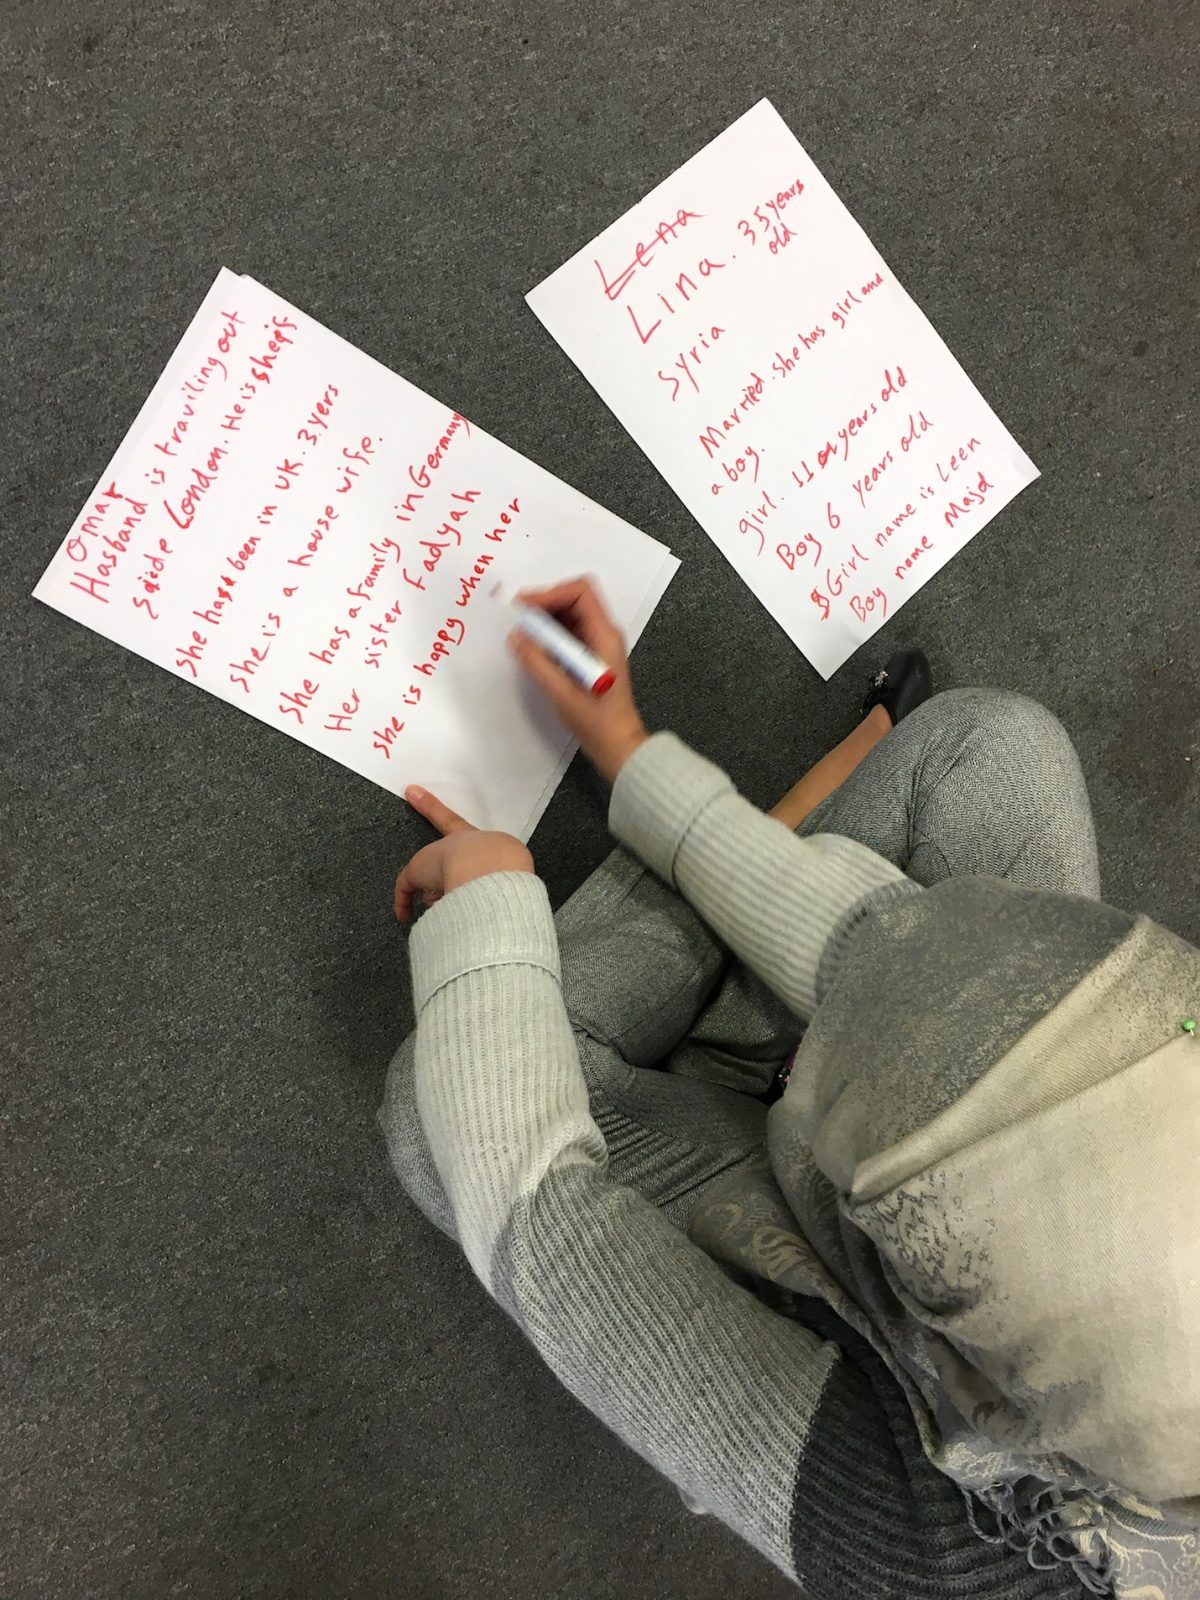 Lena
Lina. 35 years
old
Syria
Married. she has girl and
a boy.
girl. 11 years old
Boy 6 years old
Girl name is Leen
Boy name Majd
Omar
Hasband is traviling out
side London. He is
she has been in UK. 3 yers
she is a house wife.
she has a family in Germany
Her sister Fadyah
she is happy when her